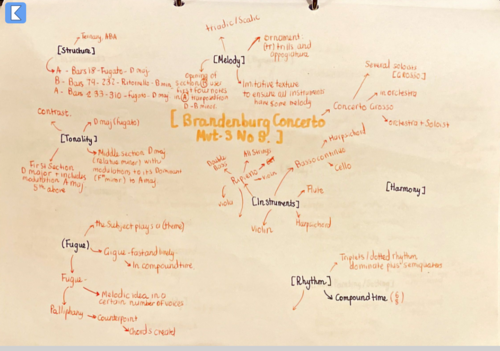 K
Ternary ABA
[Structure]
A - Bars 1-78 - Fugato - D maj
B - Bars 79-232 - Ritornello - D maj
A - Bars 233-310 - fugue - D maj
triadic/Scalic
ornament
(tr) trills and
appogiatura
[Melody]
Opening of
section B use
first four notes
in A transposition
D - B minor.
Imitative texture
to ensure all instruments
have same melody
Several soloists
(Concertino)
in orchestra
Concerto Grosso
orchestra + Soloist
[Brandenburg Concerto
Mvt-3 No 5.]
contrast.
D maj (fugato)
[Tonality]
Middle section D maj
(relative minor) with
modulation to its Dominant
(F# minor) to A maj
First section
D major + includes
modulation A maj
5th above
All Strings
Double
Bass
Ripieno
viola
Violin
Harpsichord
Basso continuo
Cello
Flute
[Instruments]
Violin
Harpsichord
[Harmony]
the Subject plays a (theme)
(Fugue)
Gigue - fast and lively
In compound time
Fugue -
Melodic idea in a
certain number of voices
Poliphony
Counterpoint
Chords created
Triplets/dotted rhythm
dominate plus semiquaver
[Rhythm]
Compound time (6/8)